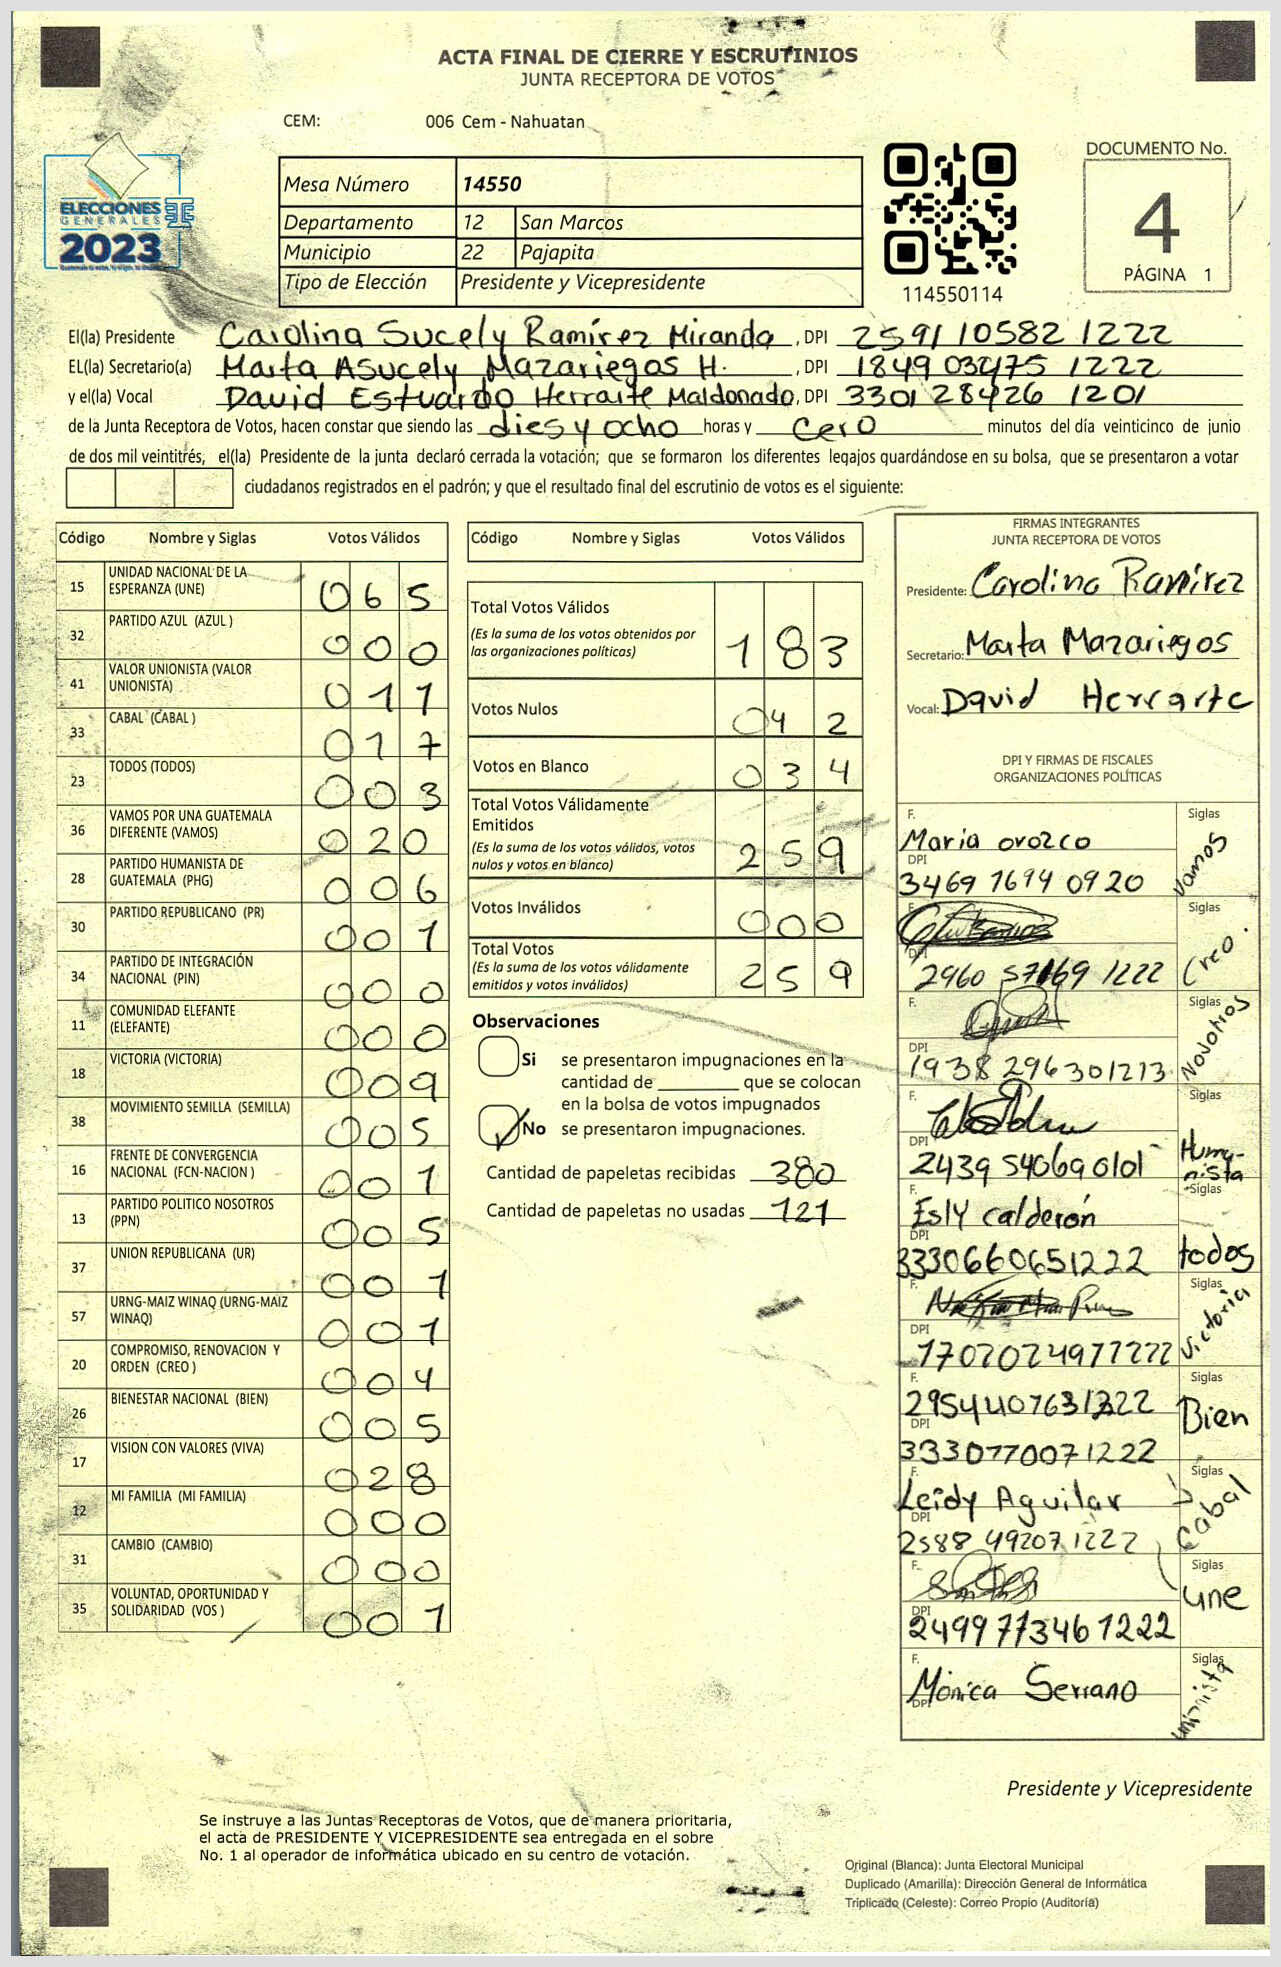 ACTA FINAL DE CIERRE Y ESCRUTINIOS
JUNTA RECEPTORA DE VOTOS
CEM: 006 Cem - Nahuatan
DOCUMENTO No.
4
PÁGINA 1
ELECCIONES
GENERALES
2023
Mesa Número 14550
Departamento 12 San Marcos
Municipio 22 Pajapita
Tipo de Elección Presidente y Vicepresidente
114550114
El(la) Presidente Carolina Sucely Ramírez Miranda, DPI 2591 10582 1222
EL(la) Secretario(a) Marta Asucely Mazariegos H., DPI 1849 03475 1222
y el(la) Vocal David Estuardo Herrarte Maldonado, DPI 3301 28426 1201
de la Junta Receptora de Votos, hacen constar que siendo las dies y ocho horas y cero minutos del día veinticinco de junio
de dos mil veintitrés, el(la) Presidente de la junta declaró cerrada la votación; que se formaron los diferentes legajos quardándose en su bolsa, que se presentaron a votar
ciudadanos registrados en el padrón; y que el resultado final del escrutinio de votos es el siguiente:
Código Nombre y Siglas Votos Válidos
15 UNIDAD NACIONAL DE LA ESPERANZA (UNE) 065
32 PARTIDO AZUL (AZUL ) 000
41 VALOR UNIONISTA (VALOR UNIONISTA) 011
33 CABAL (CABAL ) 017
23 TODOS (TODOS) 003
36 VAMOS POR UNA GUATEMALA DIFERENTE (VAMOS) 020
28 PARTIDO HUMANISTA DE GUATEMALA (PHG) 006
30 PARTIDO REPUBLICANO (PR) 001
34 PARTIDO DE INTEGRACIÓN NACIONAL (PIN) 000
11 COMUNIDAD ELEFANTE (ELEFANTE) 000
18 VICTORIA (VICTORIA) 009
38 MOVIMIENTO SEMILLA (SEMILLA) 005
16 FRENTE DE CONVERGENCIA NACIONAL (FCN-NACION ) 001
13 PARTIDO POLITICO NOSOTROS (PPN) 005
37 UNION REPUBLICANA (UR) 001
57 URNG-MAIZ WINAQ (URNG-MAIZ WINAQ) 001
20 COMPROMISO, RENOVACION Y ORDEN (CREO ) 004
26 BIENESTAR NACIONAL (BIEN) 005
17 VISION CON VALORES (VIVA) 028
12 MI FAMILIA (MI FAMILIA) 000
31 CAMBIO (CAMBIO) 000
35 VOLUNTAD, OPORTUNIDAD Y SOLIDARIDAD (VOS ) 001
Código Nombre y Siglas Votos Válidos
Total Votos Válidos
(Es la suma de los votos obtenidos por
las organizaciones políticas) 183
Votos Nulos 042
Votos en Blanco 034
Total Votos Válidamente
Emitidos
(Es la suma de los votos válidos, votos
nulos y votos en blanco) 259
Votos Inválidos 000
Total Votos
(Es la suma de los votos válidamente
emitidos y votos inválidos) 259
Observaciones
Si se presentaron impugnaciones en la
cantidad de ________ que se colocan
en la bolsa de votos impugnados
No se presentaron impugnaciones.
Cantidad de papeletas recibidas 380
Cantidad de papeletas no usadas 121
FIRMAS INTEGRANTES
JUNTA RECEPTORA DE VOTOS
Presidente: Carolina Ramírez
Secretario: Marta Mazariegos
Vocal: David Herrarte
DPI Y FIRMAS DE FISCALES
ORGANIZACIONES POLÍTICAS
F. Siglas
Maria orozco Vamos
DPI
3469 7694 0920
F. Siglas
Creo.
DPI
2960 57169 1222
F. Siglas
Nosotros
DPI
1938 296301213
F. Siglas
DPI
2439 540690101 Humanista
F. Siglas
Esly calderón
DPI
3330660651222 todos
F. Siglas
Victoria
DPI
1702024977222
F. Siglas
2954407631222 Bien
DPI
3330770071222
F. Siglas
Leidy Aguilar Cabal
DPI
2588 492071222
F. Siglas
une
DPI
2499773461222
F. Siglas
Mónica Serrano unionista
DPI
Presidente y Vicepresidente
Se instruye a las Juntas Receptoras de Votos, que de manera prioritaria,
el acta de PRESIDENTE Y VICEPRESIDENTE sea entregada en el sobre
No. 1 al operador de informática ubicado en su centro de votación.
Original (Blanca): Junta Electoral Municipal
Duplicado (Amarilla): Dirección General de Informática
Triplicado (Celeste): Correo Propio (Auditoría)